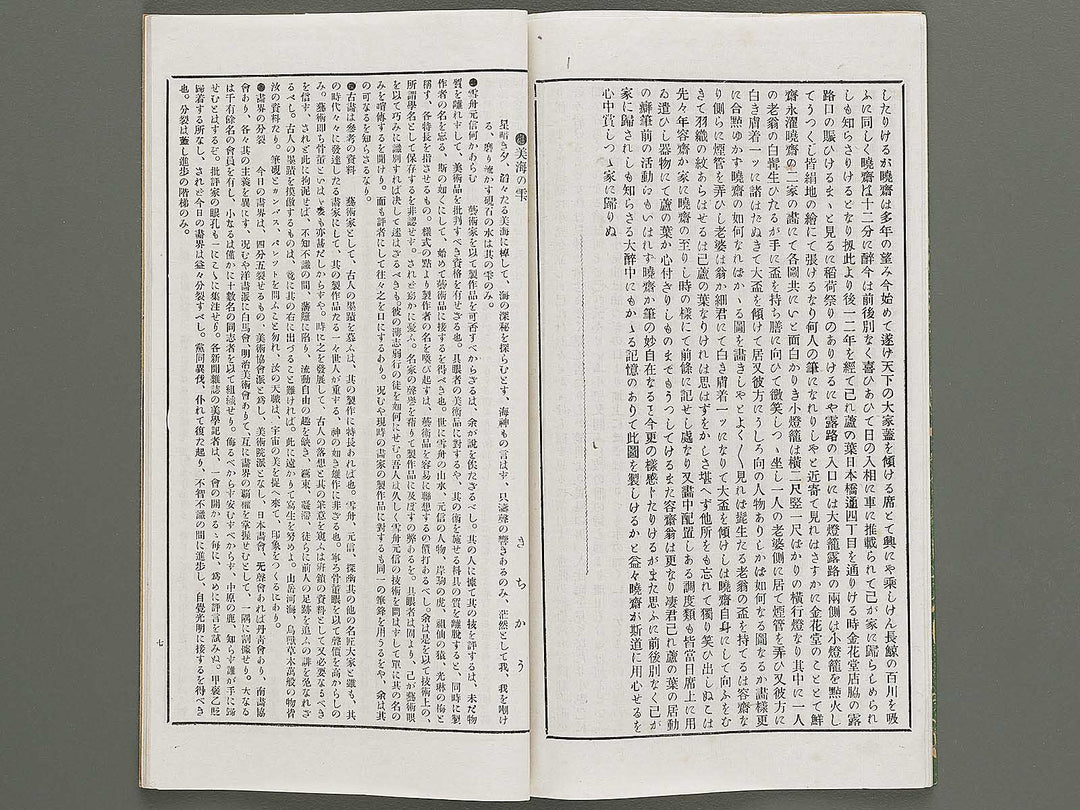 したりけるが曉齋は多年の望み今始めて遂け天下の大家蓋を傾ける席とて興にや乘しけん長鯨の百川を吸
ふに同しく曉齋は十二分に醉今は前後別なく喜ひあひて日の入相に車に推載られて己が家に歸らしめられ
しも知らさりけるとなり扨此より後一二年を經て己れ蘆の葉日本橋通四丁目を通りける時金花堂店脇の露
路口の賑ひけるまゝと見るに稻荷祭りのありけるにや露路の入口には大燈籠露路の兩側は小燈籠を㸃火し
てうつくし皆絹地の繪にて張けるなり何人の筆になれりしやと近寄て見れはさすかに金花堂のことゝて鮮
齋永濯曉齋の二家の畵にて各圖共にいと面白かりき小燈籠は橫二尺竪一尺はかりの橫行燈なり其中に一人
の老翁の白髯生ひたるが手に盃を持ち膳に向ひて微笑しつゝ坐し一人の老婆側に居て煙管を弄ひ又彼方に
白き膚着一ッに諸はたぬきて大盃を傾けて居又彼方にうしろ向の人物ありしかは如何なる圖なるか畵樣更
に合㸃ゆかす曉齋の如何なれはかゝる圖を畵きしやとよく〱見れは髭生たる老翁の盃を持てるは容齋な
り側らに煙管を弄ひし老婆は翁か細君にて白き膚着一ッになりて大盃を傾けしは曉齋自身にして向ふをむ
きて羽織の紋あらはせるは己蘆の葉なりけれは思はずをかしさ堪へず他所をも忘れて獨り笑ひ出しぬこは
先々年容齋か家に曉齋の至りし時の樣にて前條に記せし處なり又畵中配置しある調度類も皆當日席上に用
ゐ遣ひし器物にて蘆の葉か心付さりしものまでもうつしてけるまた容齋翁は更なり凄君己れ蘆の葉の居動
の癖筆前の活動いもいはれす曉齋か筆の妙自在なると今更の樣感トたりけるがまた思ふに前後別なく己が
家に歸されしも知らさる大醉中にもかゝる記憶のありて此圖を製しけるかと益々曉齋が斯道に用心せるを
心中賞しつゝ家に歸りぬ
美海の雫
きちかう
星暗き夕、滔々たる美海に棹して、海の深秘を探らむとす、海神もの言はす、只濤聲の響きあるのみ、茫然として我、我を嘲け
る、磨り流かす硯石の水は其の雫のみ。
●雪舟元信何かあらむ　藝術家を以て製作品を可否すべからざるは、余が說を俟たざるべし。其の人に據て其の技を評するは、未だ物
質を離れずして、美術品を批判すべき資格を有せざる也。具眼者の美術品に對するや、其の術を施せる料具の質を離脫すると、同時に製
作者の名を忘る、斯の如くにして、始めて藝術品に接するを得べき也。世に雪舟の山水、元信の人物、岸駒の虎、祖仙の猿、光琳の梅と
稱す、各特長を指させるもの。樣式の點より製作者の名を喚び起すは、藝術品を容易に聯想するの價打あるべし。余は是を以て技術上の、
所謂學名として保存するを非認せず。されど窃かに憂ふ。名家の聲譽を藉りて製作品に及度すの弊あるを。具眼者は固より、己が藝術眼
を以て巧みに識別すれば決して迷はざるべきも。彼の薄志弱行の徒を如何にせむ。吾人は久しく雪舟元信の技術を問はずして單に其の名の
みを嘖傳するを聞けり。而も評者にして往々之を口にするあり。況むや現時の畵家の製作品に對するも同一の筆鋒を用うるをや、余は其
の可なるを知らさるなり。
●古畵は參考の資料　藝術家として、古人の墨蹟を慕ふは、其の製作に特長あれば也。雪舟、元信、探幽其の他の名匠大家と雖も、其
の時代々々に發達したる畵家にして、其の製作品たる一々世人が重する、神の如き雄作に非ざる也。寧ろ骨董眼を以て聲價を高からしの
み。藝術卽ち骨董といはゞ愛も亦甚だしからずや。時に之を發展して、古人の落想と其の筆意を窺ふは斑猶の資料として又必要なるべき
を信す、されど此に拘泥せば、不知不識の間、舊態に陷り、流動自由の趣を缺き、羈束、凝滯、徒らに前人の足跡を追ふの誹を免なれざ
るべし。古人の墨蹟を摸倣するものは、竟に其の右に出づること難ければ。此に遠かりて寫生を努めよ。山岳河海、鳥獸草木萬般の物皆
汝の資料たり。筆硯とカンバス、パレットを問ふこと勿れ、汝の天職は、宇宙の美を捉へ來て、印象をつくるにあり。
●畵界の分裂　今日の畵界は、四分五裂せるもの、美術協會派と爲し、美術院派となし、日本畵會、无聲會あれば丹靑會あり、南畵協
會あり、各々其の主義を異にす、況むや洋畵派に白馬會、明治美術會ありて、互に畵界の覇權を掌握せむとして、一隅に割據せり。大なる
は千有餘名の會員を有し、小なるは僅かに十數名の同志者を以て組織せり。侮るべからず安むすべからず、中原の鹿、知らず誰が手に歸
せむとはするぞ。批評家の眼孔も一にこゝに集注せり。各新聞雜誌の美學記者は、一會の開かるゝ每に、爲めに評言を試みぬ。甲褒乙貶
歸着する所なし、されど今日の畵界は益々分裂すべし。黨同異伐、仆れて復た起り、不智不識の間に進步し、自覺光明に接するを得べき
也。分裂は蓋し進步の階梯のみ。
七